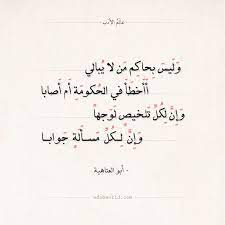 عالم الأدب
وَلَيسَ بِحاكِمٍ مَن لا يُبالي
أَأَخطَأَ في الحُكومَةِ أَم أَصابا
وَإِنَّ لِكُلِّ تَلخيصٍ لَوَجهاً
وَإِنَّ لِكُلِّ مَسأَلَةٍ جَوابا
- أبو العتاهية
adabworld.com